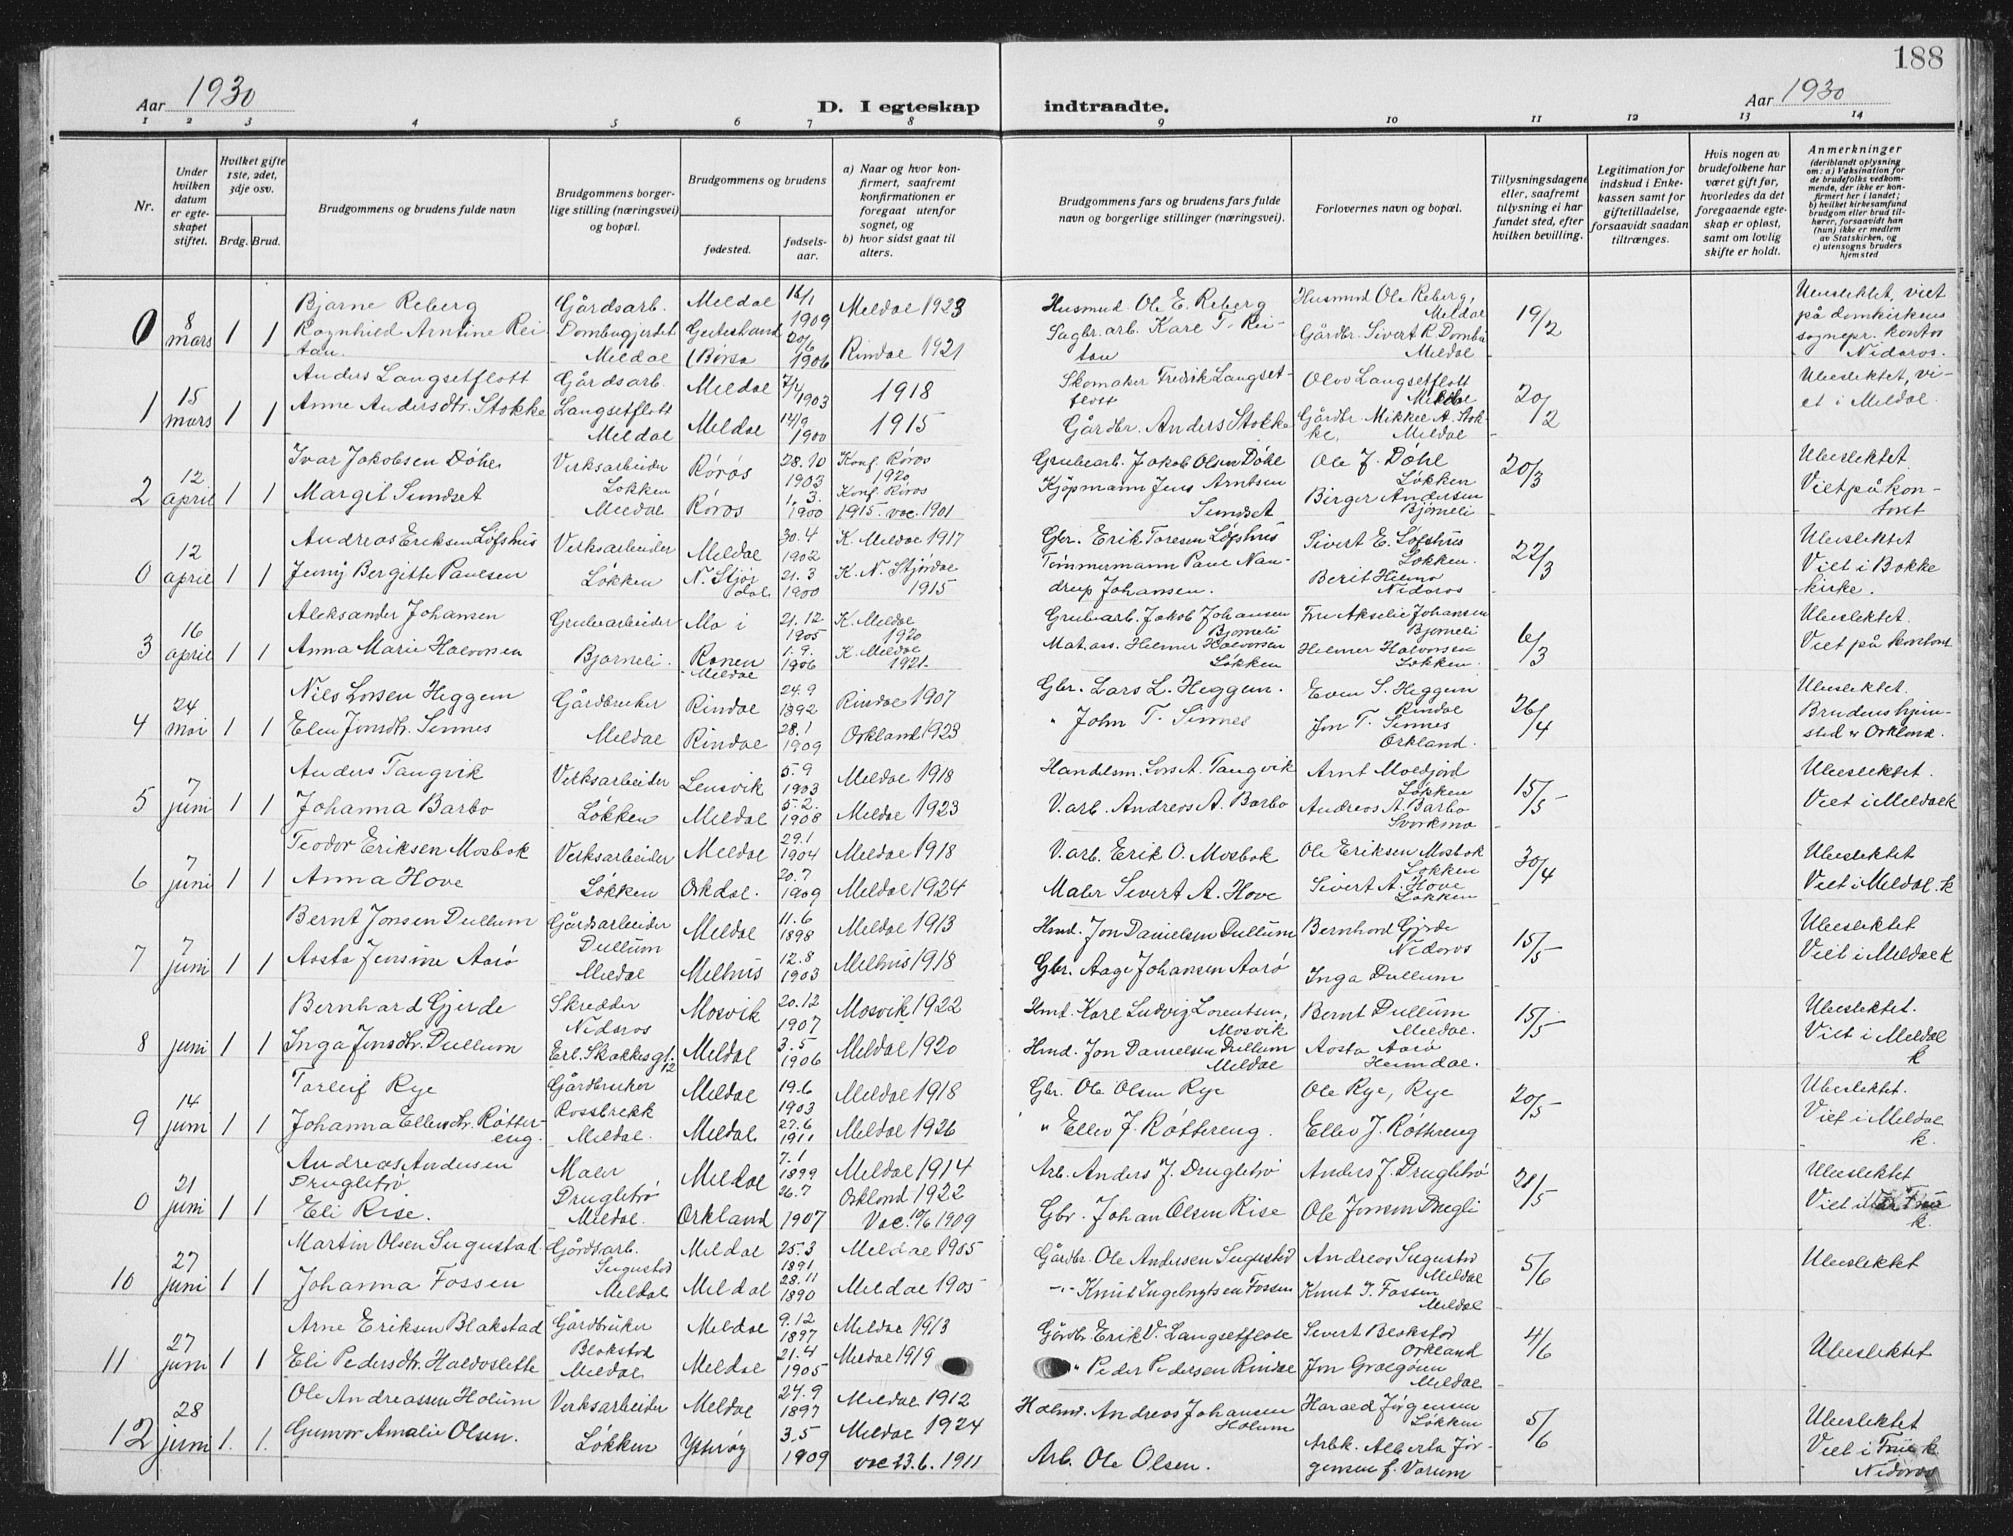 188
Aar 1930
D. I egteskap
indtraadte.
Aar 1930
1 2 3 4 5 6 7 8 9 10 11 12 13 14
Nr.
Under hvilken datum er egteskapet stiftet.
Hvilket gifte 1ste, 2det, 3dje osv.
Brdg. Brud.
Brudgommens og brudens fulde navn
Brudgommens borgerlige stilling (næringsvei) og bopæl.
Brudgommens og brudens
fødested.
fødselsaar.
a) Naar og hvor konfirmert, saafremt konfirmationen er foregaat utenfor sognet, og
b) hvor sidst gaat til alters.
Brudgommens fars og brudens fars fulde navn og borgerlige stillinger (næringsvei).
Forlovernes navn og bopæl.
Tillysningsdagene eller, saafremt tillysning ei har fundet sted, efter hvilken bevilling.
Legitimation for indskud i Enkekassen samt for giftetilladelse, forsaavidt saadan tiltrænges.
Hvis nogen av brudefolkene har været gift før, hvorledes da det foregaaende egteskap er opløst, samt om lovlig skifte er holdt.
Anmerkninger
(deriblandt oplysning om: a) Vaksination for de brudefolks vedkommende, der ikke er konfirmert her i landet; b) hvilket kirkesamfund brudgom eller brud tilhører, forsaavidt han (hun) ikke er medlem av Statskirken, og c) utensogns bruders hjemsted
0 8 mars 1 1 Bjarne Reberg Gårdsarb. Meldal 16/1 1909 Meldal 1923 Husmnd. Ole E. Reberg Husmnd Ole Reberg, Meldal 19/2 Ubeslektet, viet
Ragnhild Arntine Reitan. Meldal (Børsa 20/6 1906 Rindal 1921 Sagbr. arb. Karl T. Reitan Gårdbr. Sivert R. Meldal på domkirkens sognepr. kontor Nidaros.
1 15 mars 1 1 Anders Langsetflott Gårdsarb. Meldal 7/4 1903 1918 Skomaker Fredrik Langsetflott Olov Langsetflott Meldal 20/2 Ubeslektet, vi-
Anne Andersdtr. Stokke Langsetflott Meldal Meldal 14/9 1900 1915 Gårdbr. Anders Stokke Gårdbr. Mikkel A. Stokke, Meldal et i Meldal.
2 12 april 1 1 Ivar Jakobsen Døhl Verksarbeider Røros 28.10 1903 Konf. Røros 1920 Grubearb. Jakob Olsen Døhl Ole J. Døhl Løkken 20/3 Ubeslektet
Margit Sundset Løkken Meldal Røros 1.3. 1900 Konf. Røros 1915. vac. 1901 Kjøpmann Jens Arntsen Sundset Birger Andersen Bjørneli Viet på kontoret
0 12 april 1 1 Andreas Eriksen Løfshus Verksarbeider Meldal 30.4 1902 K. Meldal 1917 Gbr. Erik Toresen Løfshus Sivert E. Løfshus Løkken. 22/3 Ubeslektet
Jenny Bergitte Paulsen Løkken N. Stjørdal 21.3 1900 K. N. Stjørdal 1915 Tømmermann Paul Nandrup Johansen. Berit Nidaros Viet i Bakke kirke.
3 16 april 1 1 Aleksander Johansen Grubearbeider Mo i 21.12 1905 K. Meldal 1920 Grubearb. Jakob Johansen Bjørneli Fru Akselie Johansen Bjørneli 6/3 Ubeslektet.
Anna Marie Halvorsen Bjørneli. Ranen Meldal 1.9. 1906 K. Meldal 1921. Mat. ass. Helmer Halvorsen Løkken Helmer Halvorsen Løkken. Viet på kontoret
4 24 mai 1 1 Nils Larsen Heggem Gårdbruker Rindal 24.9 1892 Rindal 1907 Gbr. Lars L. Heggem. Even S. Heggem Rindal 26/4 Ubeslektet.
Elen Jonsdtr. Sinnes Meldal Rindal 28.1 1909 Orkland 1923 " John T. Sinnes Jon T. Sinnes Orkland. Brudens hjemsted er Orkland.
5 7 juni 1 1 Anders Tangvik Verksarbeider Lensvik 5.9 1903 Meldal 1918 Handelsm. Lars A. Tangvik Arnt Moldjord Løkken 15/5 Ubeslektet.
Johanna Barbo Løkken Meldal 5.2. 1908 Meldal 1923 V. arb. Andreas A. Barbo Andreas A. Barbo Svorkmo Viet i Meldal k
6 7 juni 1 1 Teodor Eriksen Mosbak Verksarbeider Meldal 29.1 1904 Meldal 1918 V. arb. Erik O. Mosbak Ole Eriksen Mosbak Løkken 30/4 Ubeslektet
Anna Hove Løkken Orkdal. 20.7 1909 Meldal 1924 Maler Sivert A. Hove Sivert A. Hove Løkken Viet i Meldal. k
7 7 juni 1 1 Bernt Jonsen Dullum Gårdsarbeider Meldal 11.6 1898 Meldal 1913 Hmd. Jon Danielsen Dullum Bernhard Gjerde Nidaros 15/5 Ubeslektet
Aasta Jensine Aarø Dullum Meldal Melhus 12.8 1903 Melhus 1918 Gbr. Aage Johansen Aarø Inga Dullum Viet i Meldal k
8 juni 1 1 Bernhard Gjerde Skredder Nidaros Mosvik 20.12 1907 Mosvik 1922 Hmd. Karl Ludvig Lorentsen, Mosvik Bernt Dullum Meldal. 15/5 Ubeslektet.
Inga Jonsdtr. Dullum Erl. Skakkesgt. 12 Meldal 3.5 1906 Meldal 1920 Hmd. Jon Danielsen Dullum Meldal Aasta Aarø Heimdal. Viet i Meldal k
9 14 juni 1 1 Torleif Rye Gårdbruker Meldal 19.6 1903 Meldal 1918 Gbr. Ole Olsen Rye Ole Rye, Rye 20/5 Ubeslektet.
Johanna Ellevsdtr. Røttereng. Rossbrekk Meldal. Meldal 27.6 1911 Meldal 1926 " Ellev J. Røttereng. Ellev J. Røttereng Viet i Meldal k.
0 21 juni 1 1 Andreas Andersen Drugletrø Maler Meldal 7.1 1899 Meldal 1914 Arb. Anders J. Drugletrø Anders J. Drugletrø 28/5 Ubeslektet
Eli Rise. Drugletrø Meldal. Orkland 26.7 1907 Orkland 1922 Vac. 10/6 1909 Gbr. Johan Olsen Rise Ole Jonsen Drugli Viet i Vår Frue k.
10 27 juni 1 1 Martin Olsen Sugustad Gårdsarb. Meldal 25.3 1891 Meldal 1905 Gårdbr. Ole Andersen Sugustad Andreas Sugustad Meldal 5/6 Ubeslektet
Johanna Fossen Sugustad Meldal Meldal 28.11 1890 Meldal 1905 -"- Knut Ingebrigtsen Fossen Knut I. Fossen Meldal
11 27 juni 1 1 Arne Eriksen Blakstad Gårdbruker Meldal 9.12 1897 Meldal 1913 Gårdbr Erik V. Langsetflott Sivert Blokstad Orkland 4/6
Eli Pedersdtr. Haldoslette Blakstad Meldal Meldal 21.4 1905 Meldal 1919 " Peder Pedersen Rindal Jon Meldal Ubeslektet
12 28 juni 1. 1. Ole Andreassen Holum Verksarbeider Meldal 24.9 1897 Meldal 1912 Holmd. Andreas Johansen Holum Harald Jørgensen Løkken 5/6 Ubeslektet
Gunvor Amalie Olsen. Løkken Ytterøy 3.5 1909 Meldal 1924 vac 23.6.1911 Arb. Ole Olsen. Arbk. Alberta Jørgensen f. Varum Viet i Frue k Nidaros